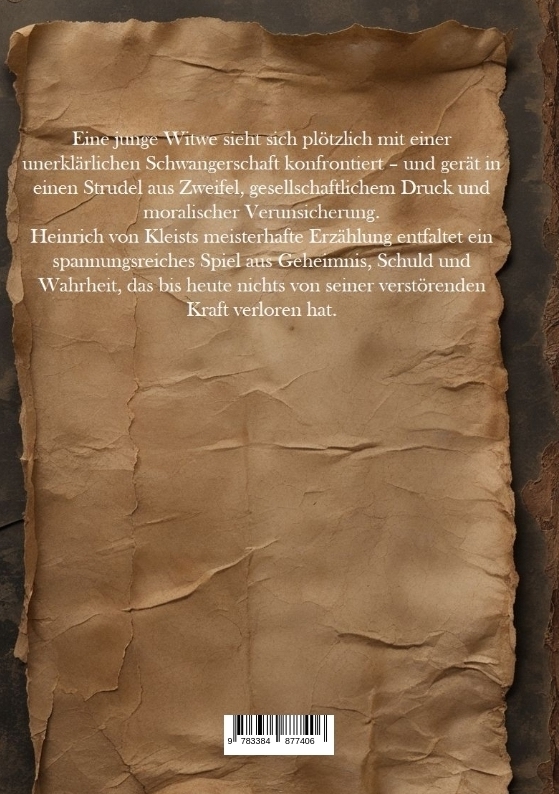 Eine junge Witwe sieht sich plötzlich mit einer
unerklärlichen Schwangerschaft konfrontiert – und gerät in
einen Strudel aus Zweifel, gesellschaftlichem Druck und
moralischer Verunsicherung.
Heinrich von Kleists meisterhafte Erzählung entfaltet ein
spannungsreiches Spiel aus Geheimnis, Schuld und
Wahrheit, das bis heute nichts von seiner verstörenden
Kraft verloren hat.
9 783384 877406